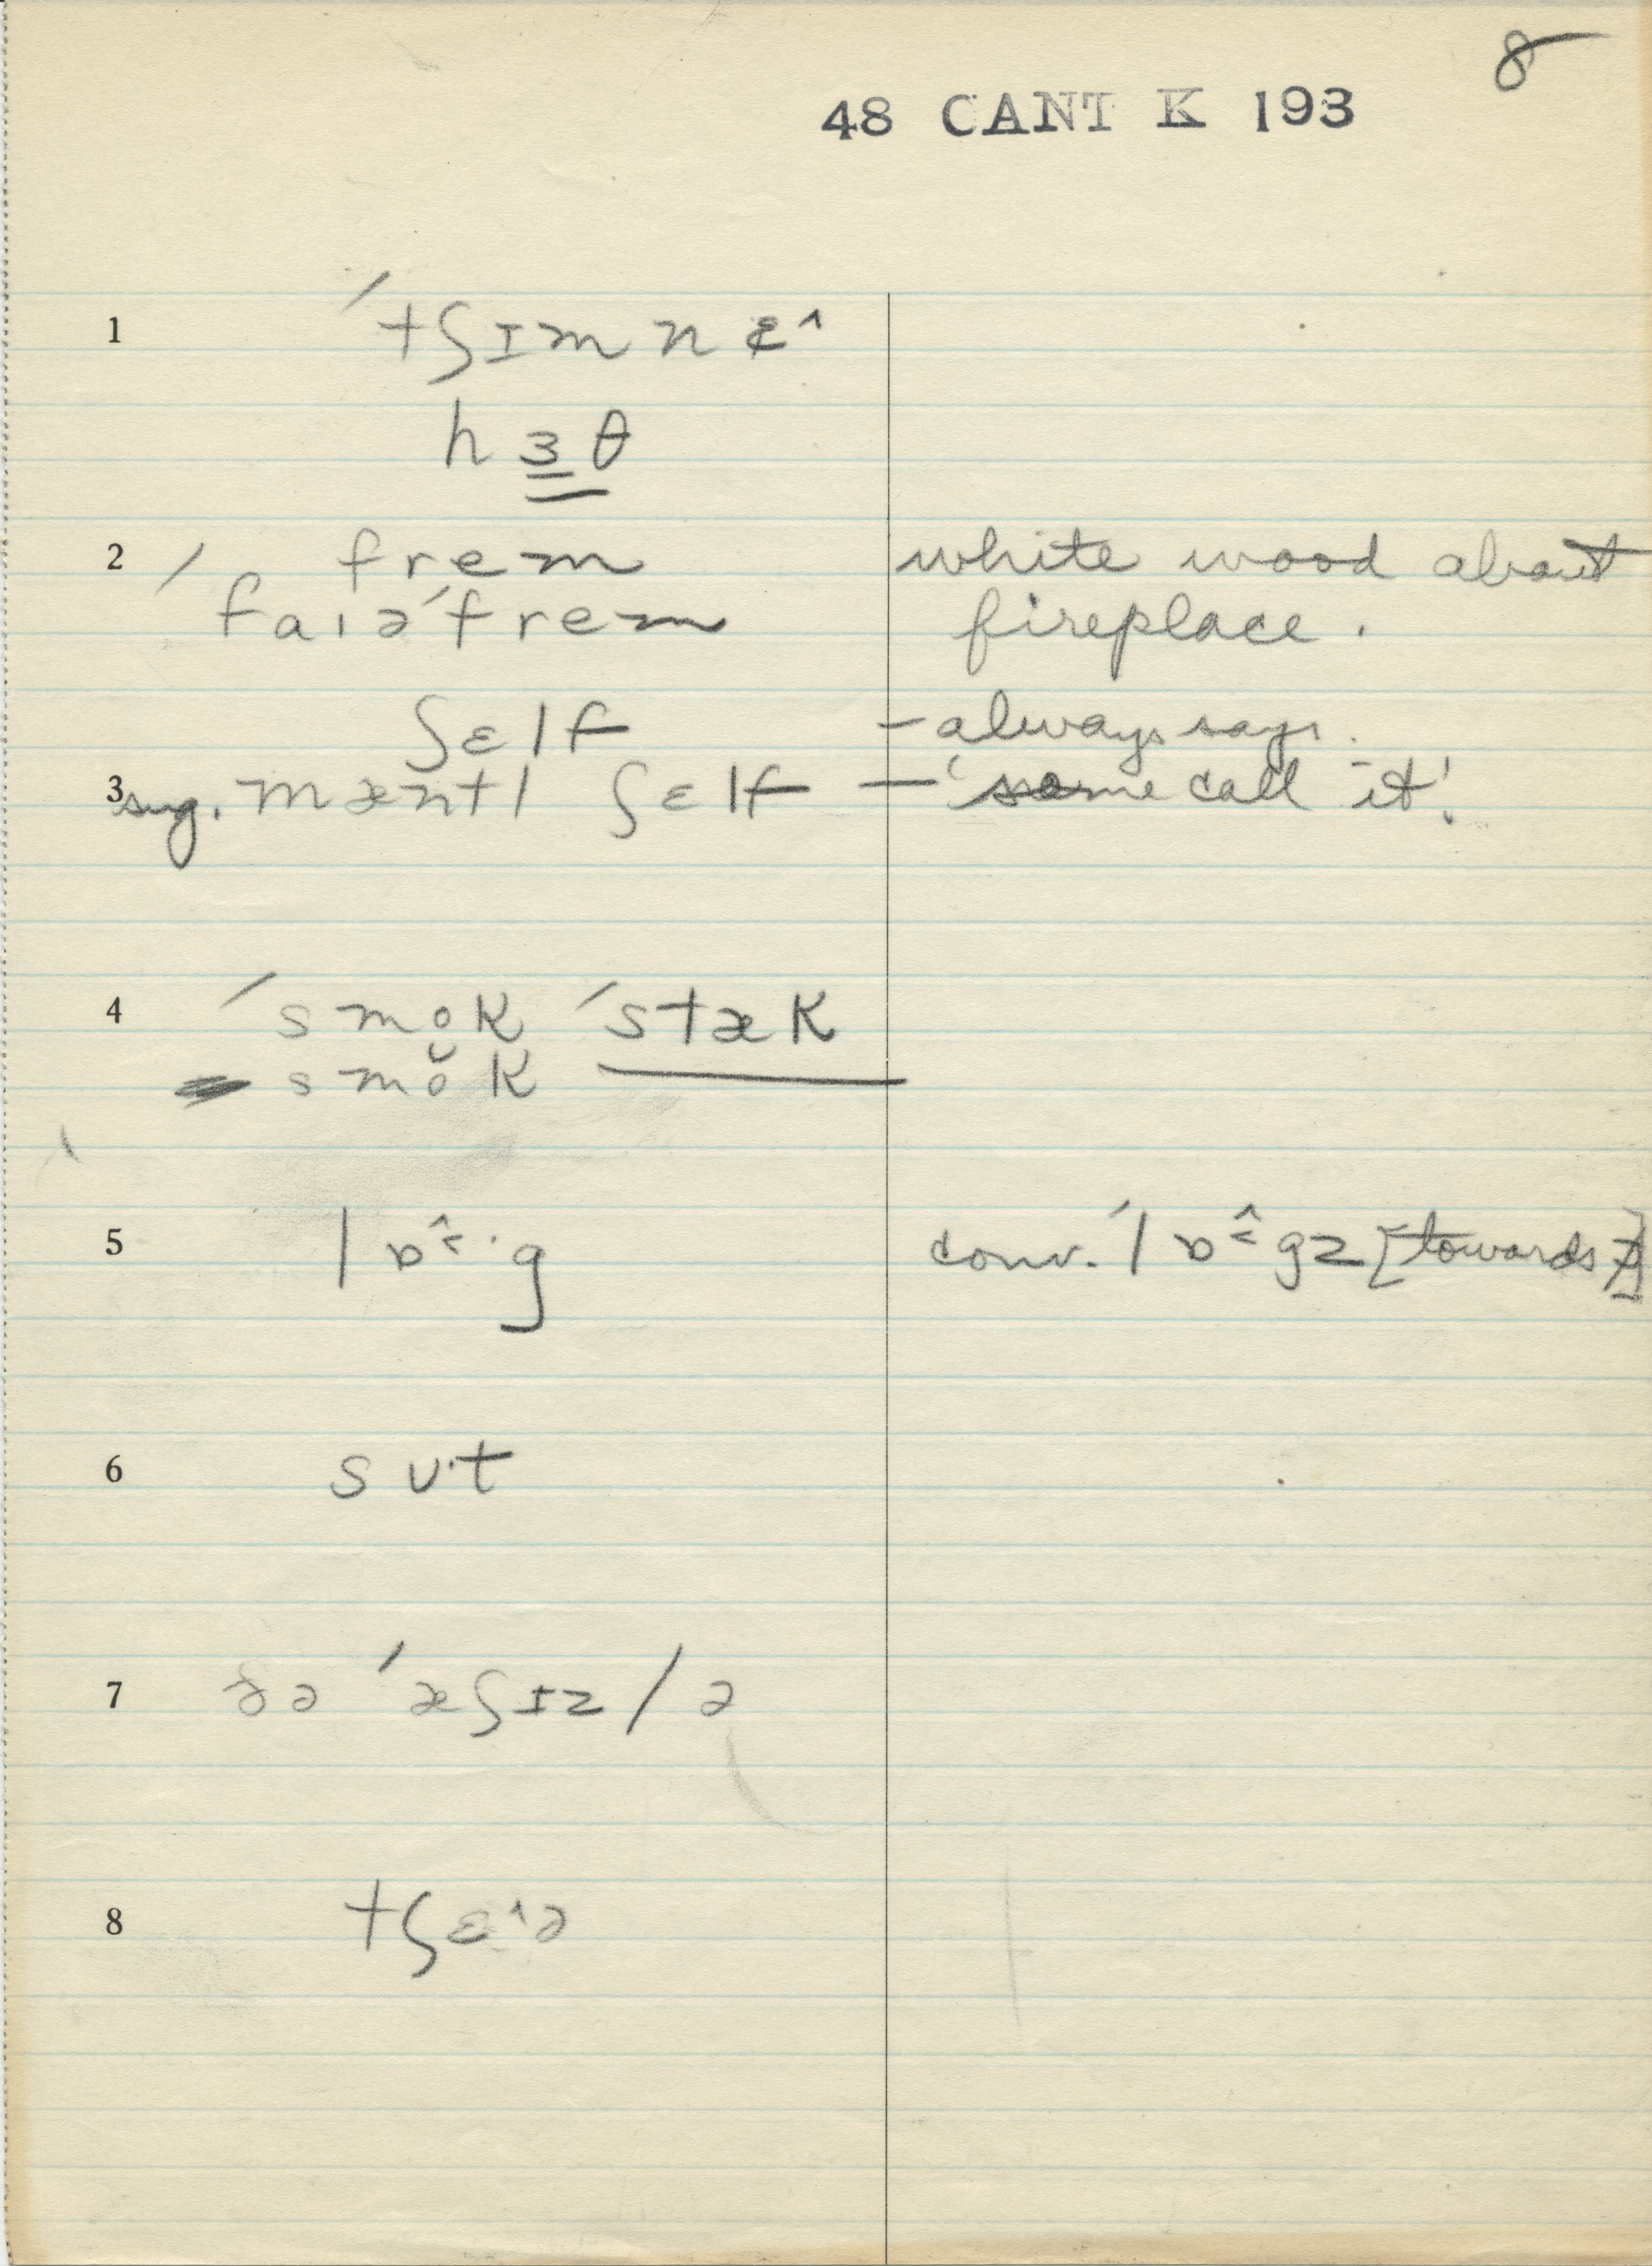 8
48 CANT K 193
1 ˈtʃɪmnɛ^
hɜ̳θ
2 ˈfrem white wood about
faɪəˈfrem fireplace.
ʃɛlf – always says.
3 sug. mæntl ʃɛlf – 'some call it'.
4 ˈsmok ˈstæk
smŏk
5 lɒ^<·g conv. ˈlɒ^<gz [towards
6 sʊ·t
7 ðə ˈæʃɪz / ə
8 tʃɛ^ə